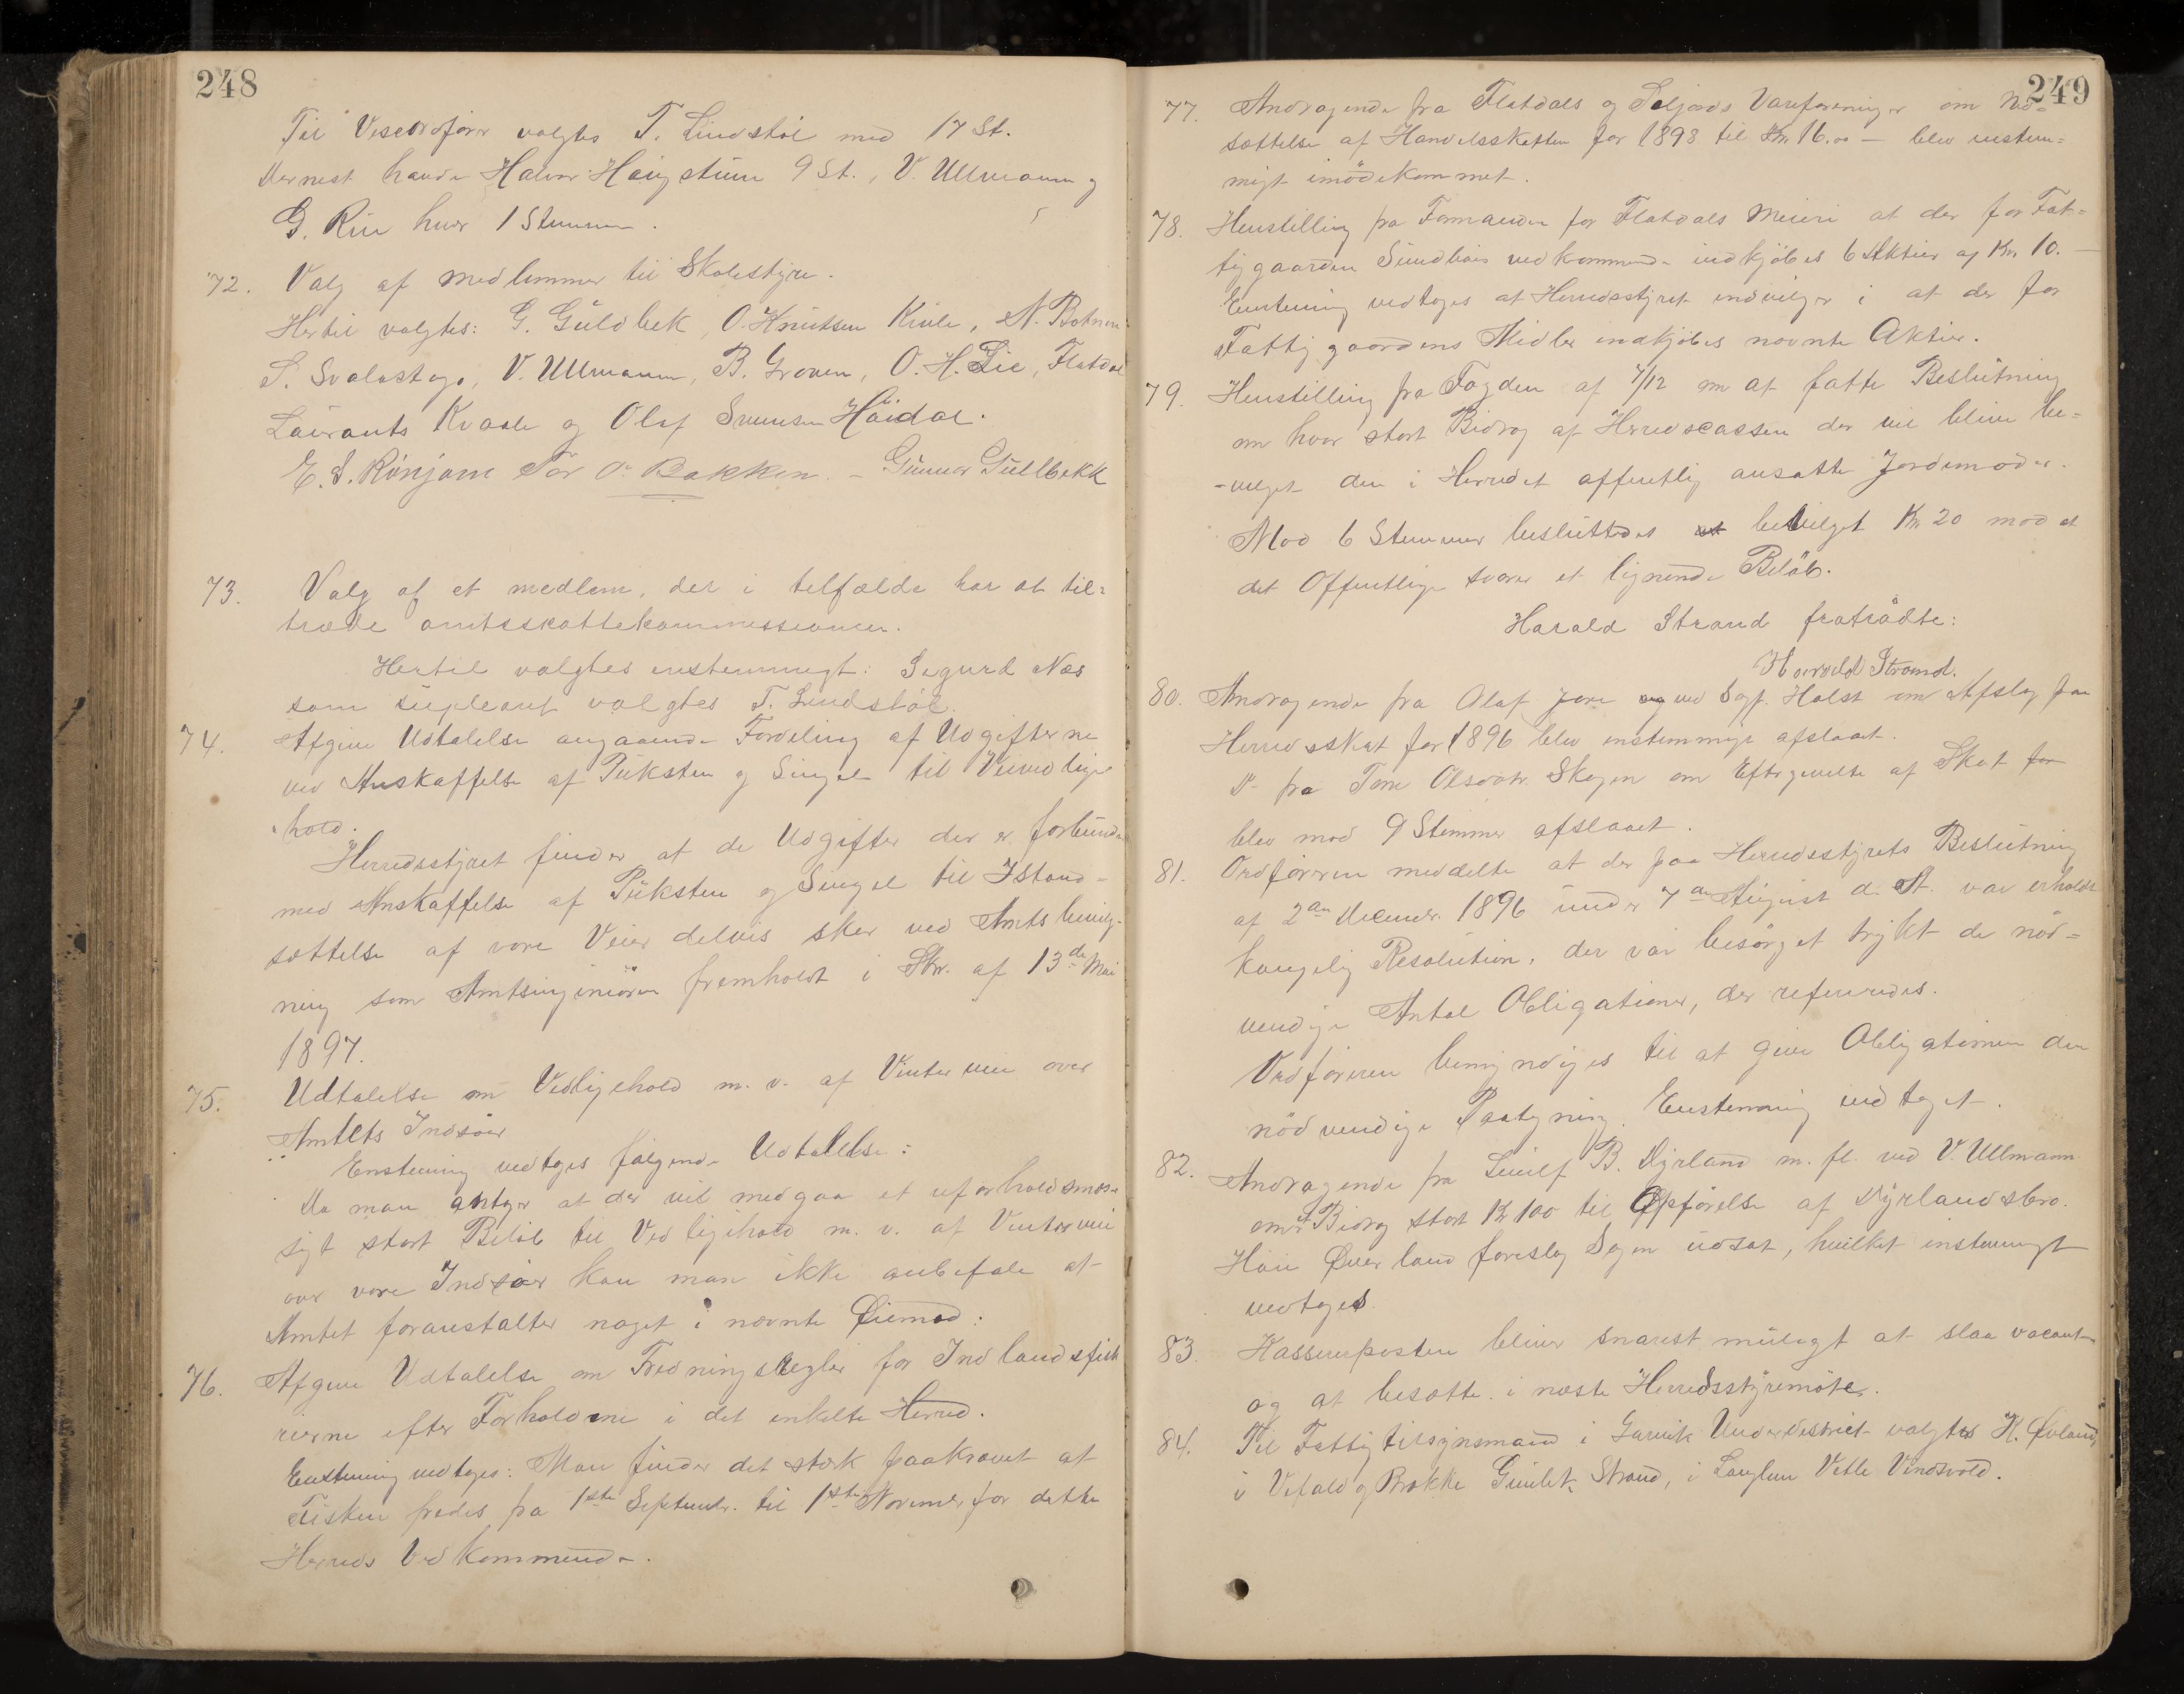 248
Til Viseordfører valgtes T. Lindstøl med 17 St.
Dernest havde Halvor Haugstuen 9 St., V. Ullmann og
G. Rui hver 1 Stemme.
72. Valg af medlemmer til Skolestyre.
Hertil valgtes: G. Guldbek, O. Knutsen Kivle, N. Botnen
S. Svalastoga, V. Ullmann, B. Groven, O. H. Lie, Flatdal
Laurants Kvaale og Olaf Svensen Høidal.
E. S. Rønjom Tor O. Bakken. – Gunnar Gullbekk
73. Valg af et medlem, der i tilfælde har at til=
træde amtsskattekommissionen.
Hertil valgtes enstemmigt: Sigurd Næs
som supleant valgtes T. Lindstøl.
74. Afgive Udtalelse angaaende Fordeling af Udgifterne
ved Anskaffelse af Puksten og Singel til Veivedlige
hold.
Herredsstyret finder at de Udgifter der er forbundne
med Anskaffelse af Puksten og Singel til Istand=
sættelse af vore Veier delvis sker ved Amtsbevilg-
ning som Amtsingeniøren fremholdt i Skr. af 13de Mai
1897.
75. Udtalelse om Vedligehold m. v. af Vinterveie over
Amtets Indsøer
Enstemmig vedtoges følgende Udtalelse:
Da man antager at der vil medgaa et uforholdsmæs=
sigt stort Beløb til Vedligehold m. v. af Vinterveie
over vore Indsøer kan man ikke anbefale at
Amtet foranstalter noget i nævnte Øiemed.
76. Afgive Udtalelse om Fredningsregler for Indlandsfiske
rierne efter Forholdene i det enkelte Herred.
Enstemmig vedtoges: Man finder det stærk paakrævet at
Fisken fredes fra 1ste Septembr. til 1ste November for dette
Herreds Vedkommende.
249
77. Andragende fra Flatdals og Seljords Vareforeninger om Ned=
sættelse af Handelsskatten for 1898 til Kr. 16.00 – blev enstem=
migt imødekommet.
78. Henstilling fra Formanden for Flatdals Meieri at der for Fat=
tiggaarden Sundbøs vedkommende indkjøbes 6 Aktier a Kr. 10. –
Enstemmig vedtoges at Herredsstyret indvilger i at der for
Fattiggaardens Midler indkjøbes nævnte Aktier.
79. Henstilling fra Fogden af 7/12 om at fatte Beslutning
om hvor stort Bidrag af Herredscassen der vil blive be=
-vilget den i Herredet offentlig ansatte Jordemoder.
Mod 6 Stemmer besluttedes bevilget Kr 20 mod at
det Offentlige svarer et lignende Beløb.
Harald Strand fratrådte:
Harald Strand.
80. Andragende fra Olaf Jore ved Sagf. Holst om Afslag paa
Herredsskat for 1896 blev enstemmige afslaaet.
D- fra Tone Olsdatr. Skogen om Eftergivelse af Skat for
blev mod 9 Stemmer afslaaet.
81. Ordføreren meddelte at der paa Herredsstyrets Beslutning
af 2den Decembr. 1896 under 7de August d. A. var erholdt
kongelig Resolution, der var besørget trykt de nød=
vendige Antal Obligationer, der refereredes.
Ordføreren bemyndiges til at give Obligationen den
nødvendige Paategning. Enstemmig vedtaget.
82. Andragende fra Leiulf B. Dyrland m. fl. ved V. Ullmann
om et Bidrag stort Kr 100 til Opførelse af Dyrlandsbro.
Hæge Øverland foreslog Sagen udsat, hvilket enstemmigt
vedtoges.
83. Kassererposten bliver snarest muligt at slaa vacant
og at besætte i næste Herredsstyremøte.
84. Til Fattigtilsynsmand i Garvik Underdistrict valgtes K. Øvland,
i Vefald og Brokke Gunleik Strand, i Langlim Vetle Vindsvold.